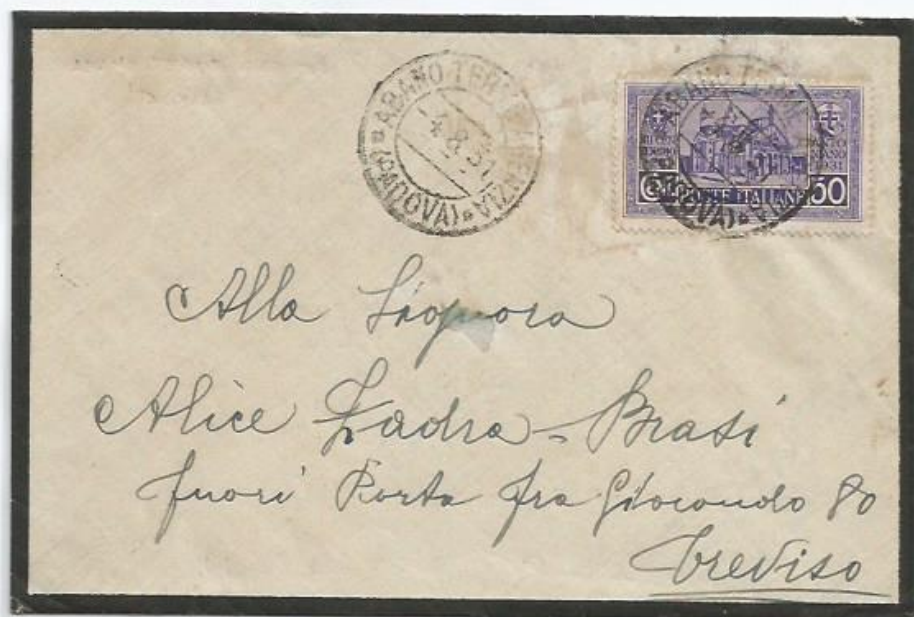 ABANO TERME
(PADOVA)
4.8.31
POSTE ITALIANE 50
Alla Signora
Alice Zadra-Brasi
fuori Porta fra Giocondo 80
Treviso